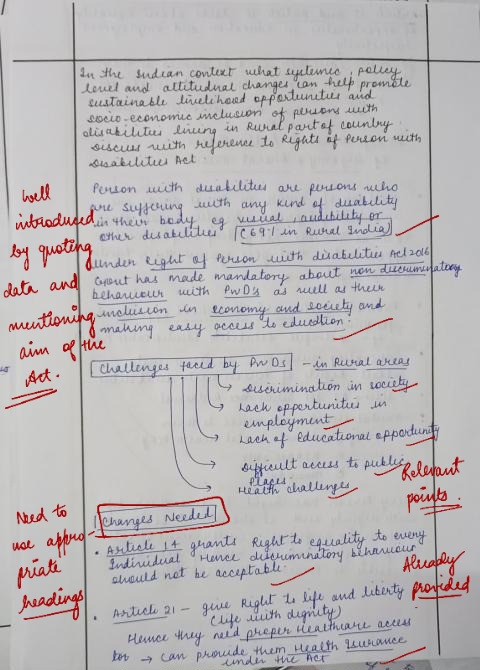 In the Indian context what systemic, policy
level and attitudinal changes can help promote
sustainable livelihood opportunities and
socio-economic inclusion of persons with
disabilities living in Rural part of country
Discuss with reference to Rights of Person with
Disabilities Act
Person with disabilities are persons who
are suffering with any kind of disability
in their body eg visual, audibility or
other disabilities (69% in Rural India)
Under Right of Person with disabilities Act 2016
Govt has made mandatory about non discriminatory
behaviour with PwD's as well as their
inclusion in economy and society and
making easy access to eduction.
Well
introduced
by quoting
data and
mentioning
aim of the
Act.
Challenges faced by PwDs - in Rural areas
Discrimination in society
Lack opportunities in
employment
Lack of Educational opportunity
Difficult access to public
places
Health challenges
Relevant
points.
Changes Needed
Need to
use appro-
priate
headings
• Article 14 grants Right to equality to every
Individual Hence discriminatory behaviour
should not be acceptable.
Already
provided
• Article 21 - give Right to life and liberty
(Life with dignity)
Hence they need proper Healthcare access
→ Can provide them Health Isurance
under the Act